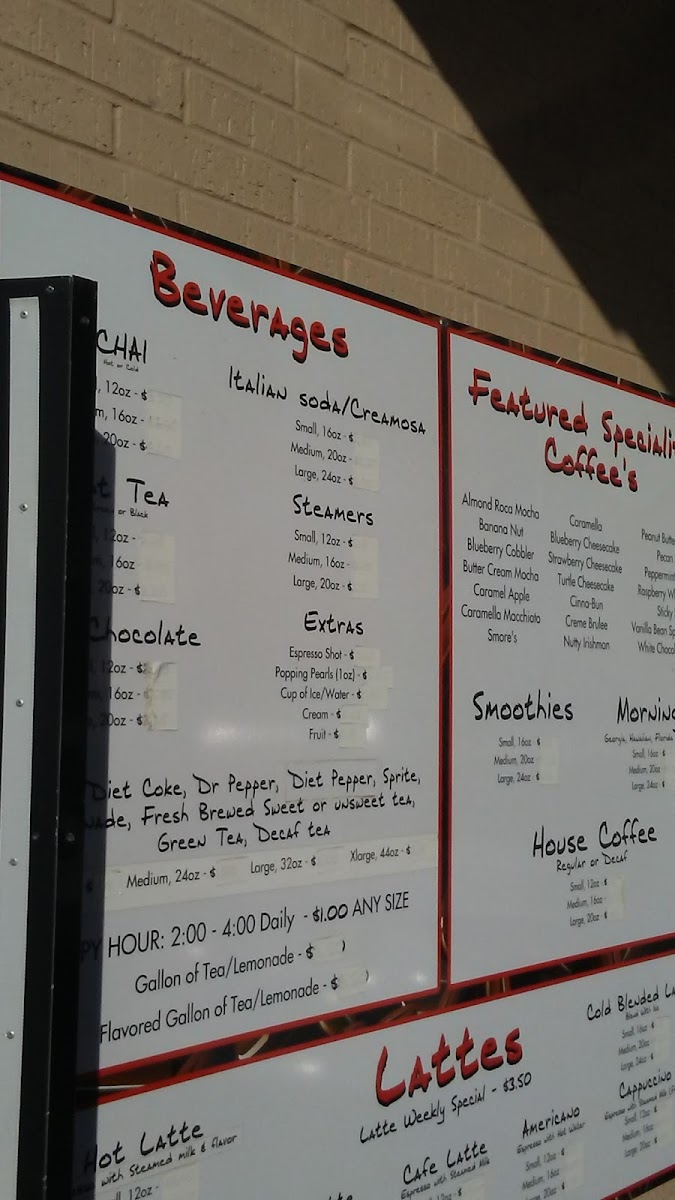 Beverages
CHAI
Hot or Cold
12oz - $
16oz -
20oz - $
Tea
or Black
12oz -
16oz
20oz - $
Chocolate
12oz - $
16oz - $
20oz - $
Italian soda/Creamosa
Small, 16oz - $
Medium, 20oz -
Large, 24oz - $
Steamers
Small, 12oz - $
Medium, 16oz -
Large, 20oz - $
Extras
Espresso Shot - $
Popping Pearls (1oz) - $
Cup of Ice/Water - $
Cream - $
Fruit - $
Diet Coke, Dr Pepper, Diet Pepper, Sprite,
Fresh Brewed Sweet or unsweet tea,
Green Tea, Decaf tea
Medium, 24oz - $ Large, 32oz - $ Xlarge, 44oz - $
HOUR: 2:00 - 4:00 Daily - $1.00 ANY SIZE
Gallon of Tea/Lemonade - $ )
Flavored Gallon of Tea/Lemonade - $ )
Featured
Coffee's
Almond Roca Mocha
Banana Nut
Blueberry Cobbler
Butter Cream Mocha
Caramel Apple
Caramella Macchiato
Smore's
Caramella
Blueberry Cheesecake
Strawberry Cheesecake
Turtle Cheesecake
Cinna-Bun
Creme Brulee
Nutty Irishman
Peanut
Pecan
Raspberry
Sticky
Vanilla Bean
White
Smoothies
Small, 16oz - $
Medium, 20oz
Large, 24oz - $
Georgia, Hawaiian, Florida
Small, 16oz - $
Medium, 20oz
Large, 24oz - $
House Coffee
Regular or Decaf
Small, 12oz - $
Medium, 16oz -
Large, 20oz - $
Lattes
Latte Weekly Special - $3.50
Hot Latte
with Steamed milk & flavor
12oz -
Cafe Latte
Espresso with Steamed Milk
12oz - $
Americano
Espresso with Hot Water
Small, 12oz - $
Medium, 16oz -
Large, 20oz - $
Cold Blended
Small, 16oz - $
Medium, 20oz
Large, 24oz - $
Cappuccino
Espresso with Steamed Milk
Small, 12oz - $
Medium, 16oz
Large, 20oz - $